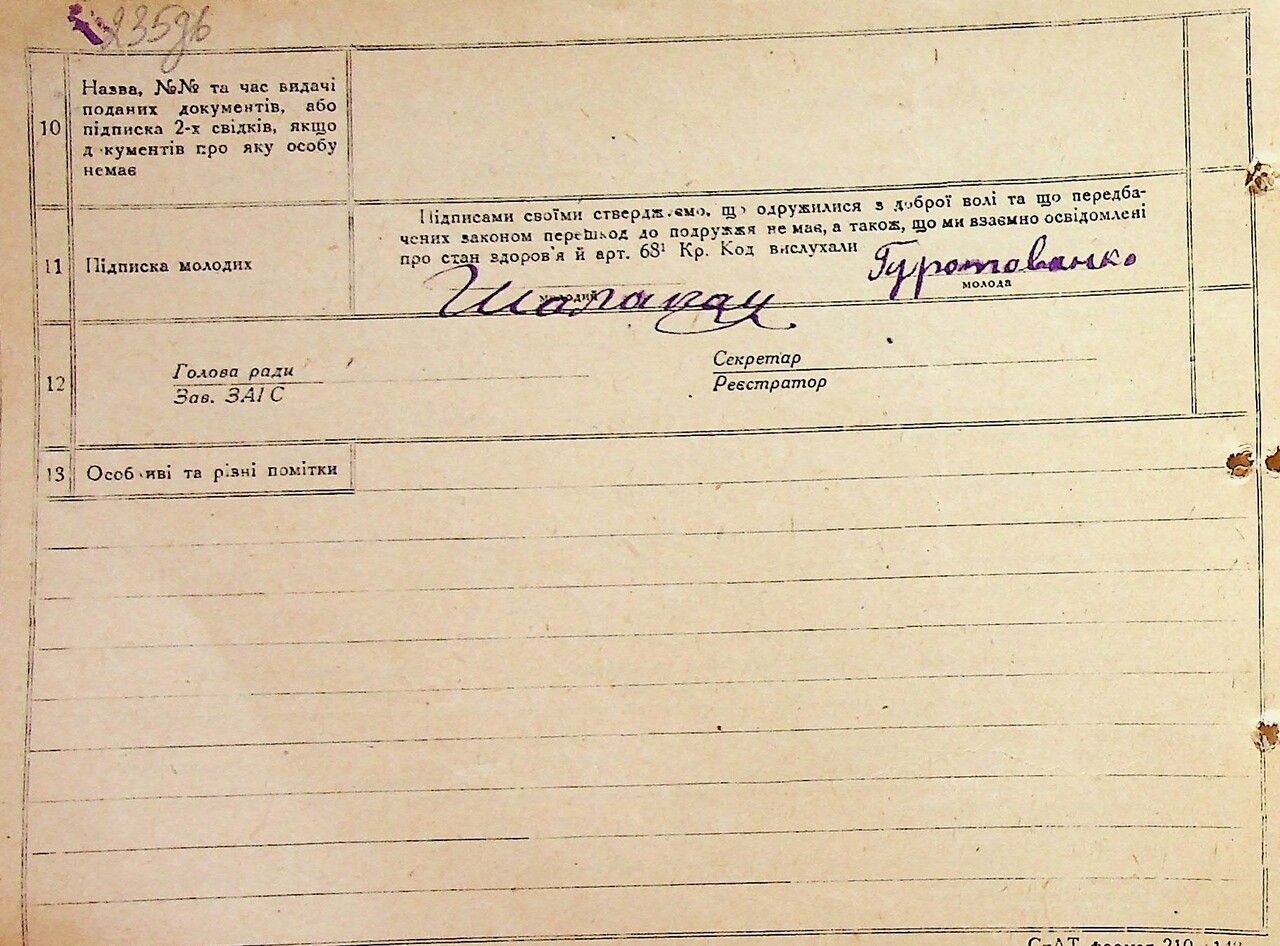 235
10
Назва, №№ та час видачі
поданих документів, або
підписка 2-х свідків, якщо
д кументів про яку особу
немає
11
Підписка молодих
Підписами своїми стверджуємо, що одружилися з доброї волі та що передба-
чених законом перешкод до подружжя не має, а також, що ми взаємно освідомлені
про стан здоров'я й арт. 68¹ Кр. Код вислухали
молодий
молода
12
Голова ради
Зав. ЗАГС
Секретар
Реєстратор
13
Особливі та різні помітки